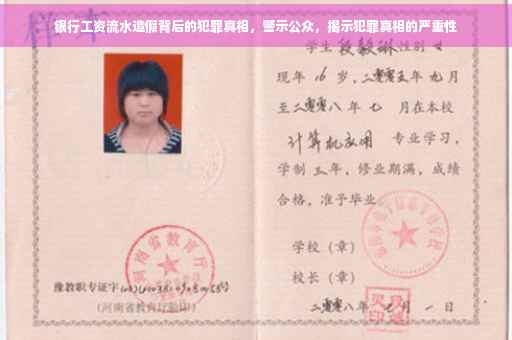 银行工资流水造假背后的犯罪真相，警示公众，揭示犯罪真相的严重性
样本
学生 段毅琳 性别 女
现年 16 岁，二零零五年 九月
至二零零八年 七 月在本校
计算机应用 专业学习，
学制 三年，修业期满，成绩
合格，准予毕业。
学校（章）
校长（章）
二零零八年 七 月 一 日
河南省教育厅
豫教职专证字
（河南省教育厅验印）